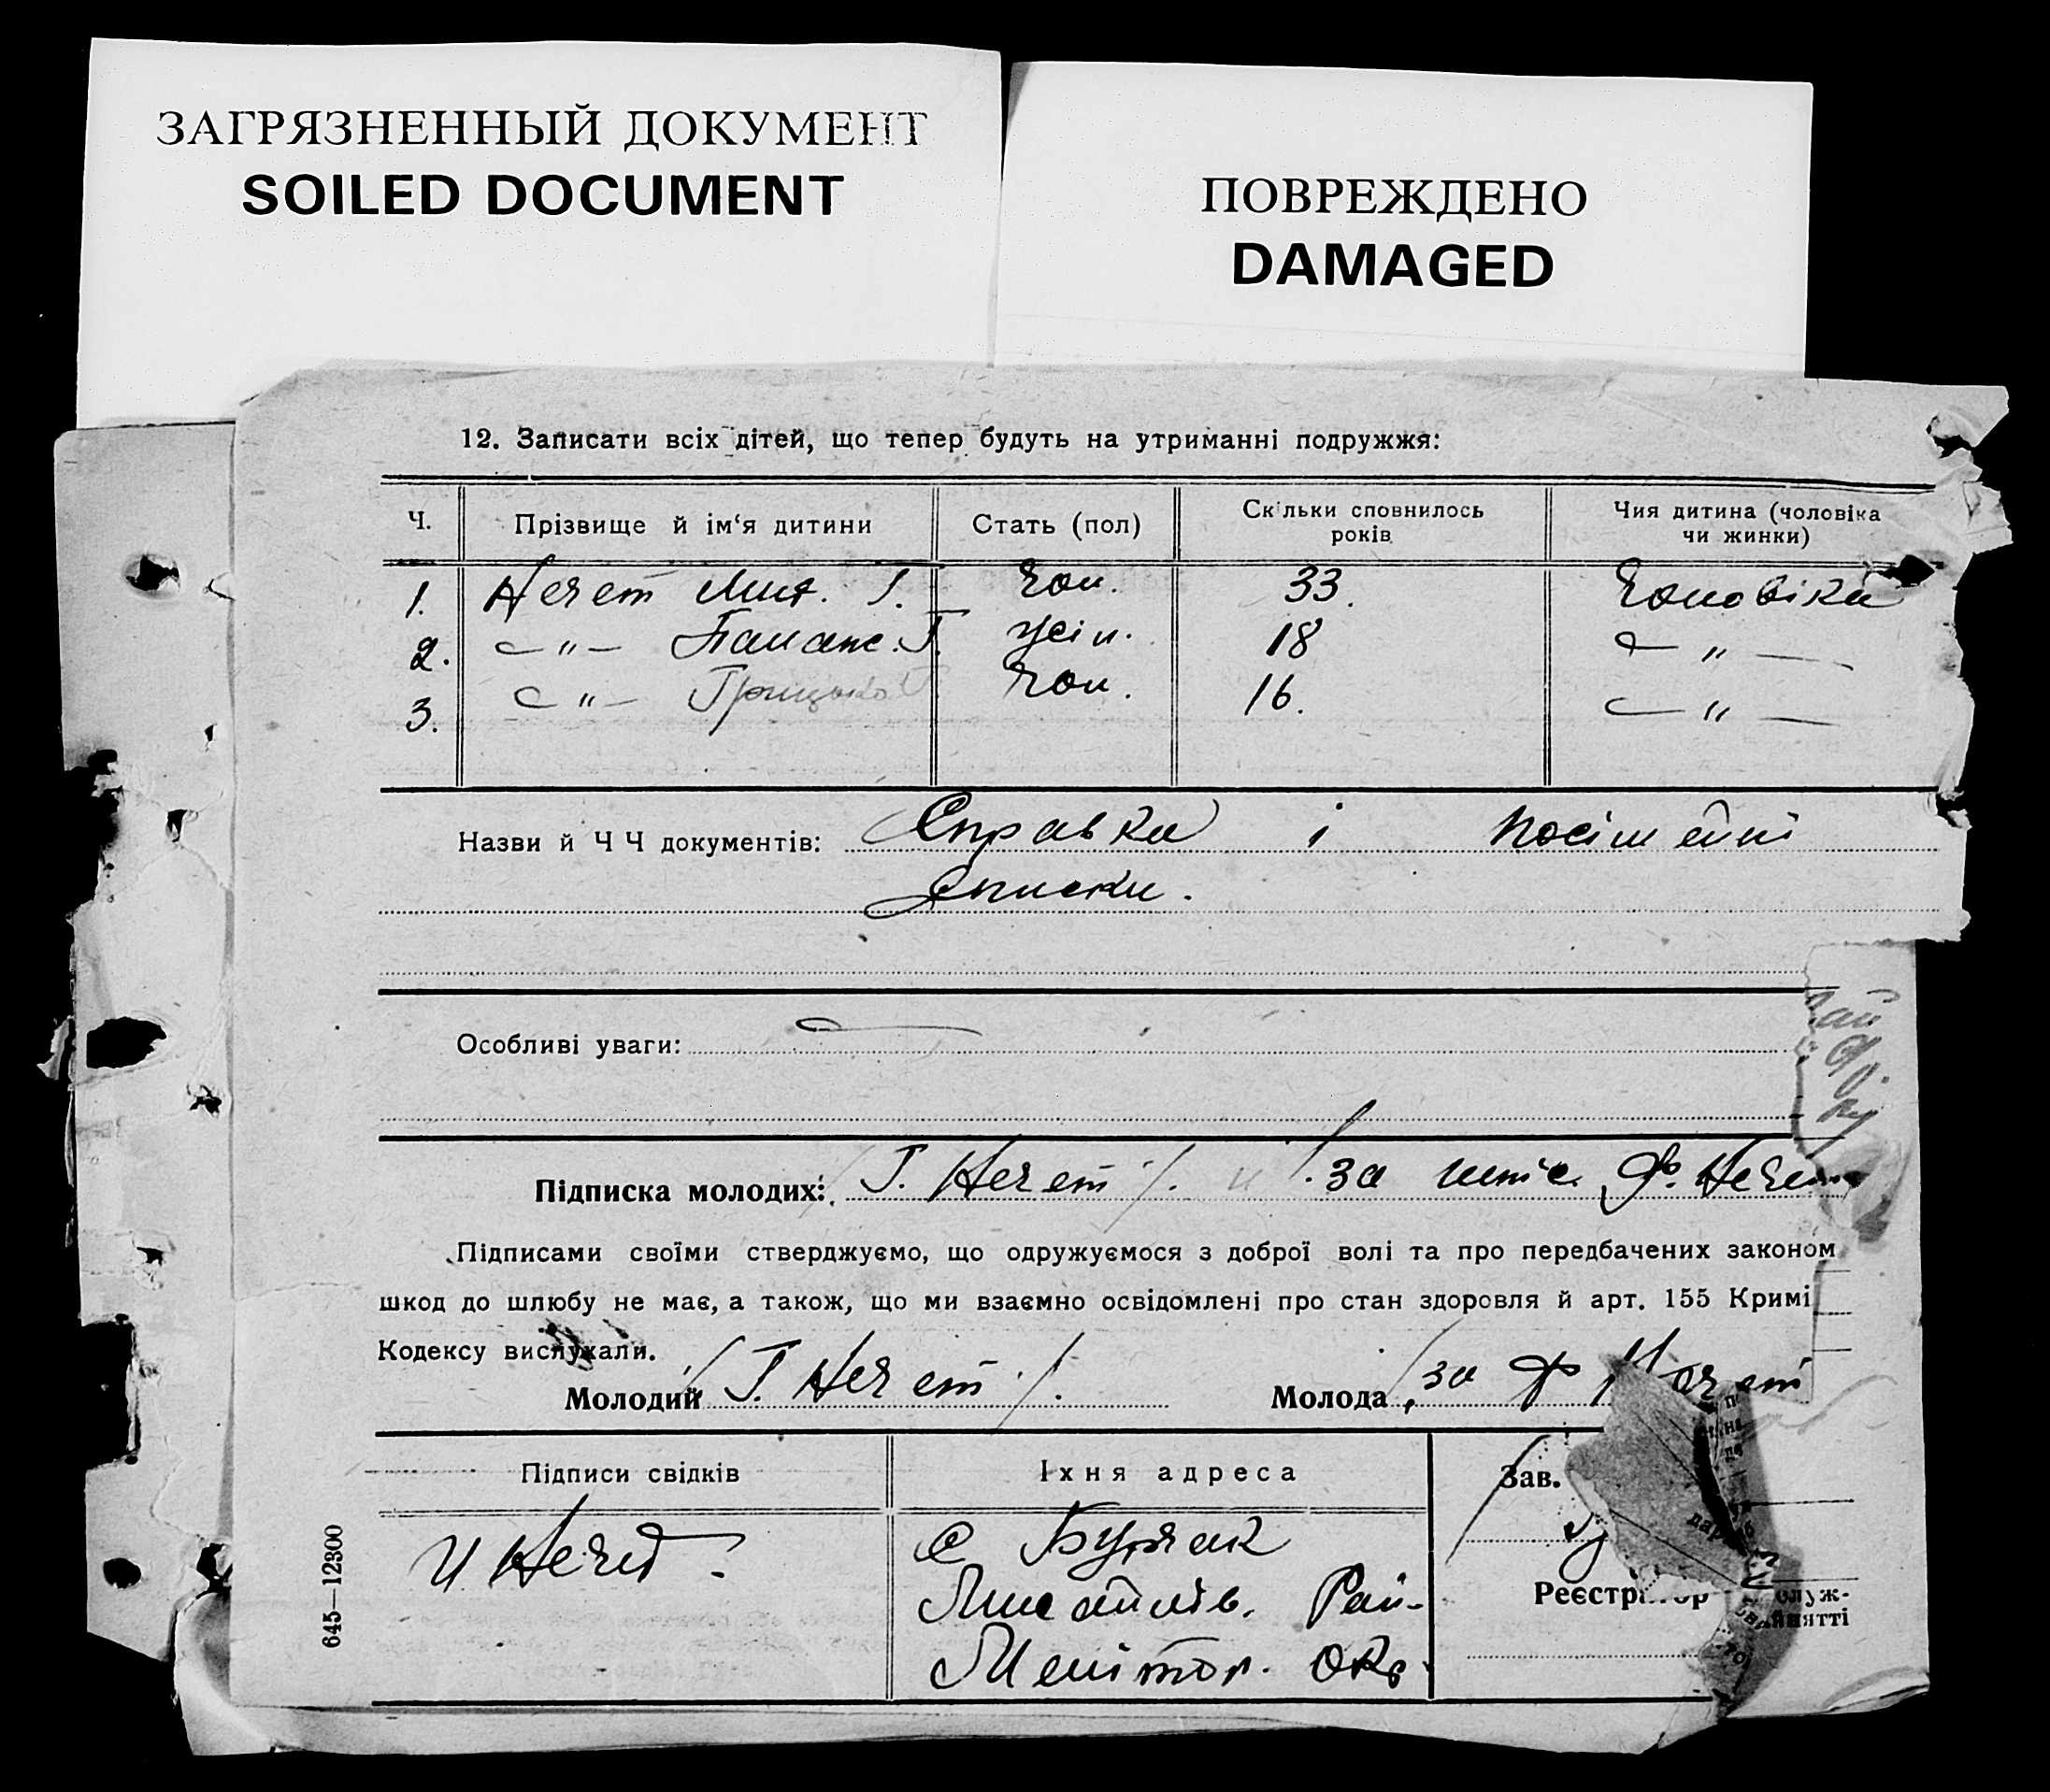 ЗАГРЯЗНЕННЫЙ ДОКУМЕНТ
SOILED DOCUMENT
ПОВРЕЖДЕНО
DAMAGED
12. Записати всіх дітей, що тепер будуть на утриманні подружжя:
Ч. Прізвище й ім‘я дитини Стать (пол) Скільки сповнилось років Чия дитина (чоловіка чи жинки)
1. Нечет Мит. Г. Чол. 33. Чоловіка
2. — „ — Г. жін. 18 — „ —
3. — „ — Грицько Чол. 16. — „ —
Назви й Ч Ч документів: Справка і посімейні
списки.
Особливі уваги:
Підписка молодих: /Г. Нечет/. /за Ф. Нечет
Підписами своїми стверджуємо, що одружуємося з доброї волі та про передбачених законом
шкод до шлюбу не має, а також, що ми взаємно освідомлені про стан здоровля й арт. 155 Кримі
Кодексу вислухали.
Молодий /Г. Нечет/. Молода /за Ф Нечет
Підписи свідків Їхня адреса Зав.
И. Нечет. с Бурчак
Михайлів. Рай-
Реєстратор
Мелітоп. Окр.
645—12300